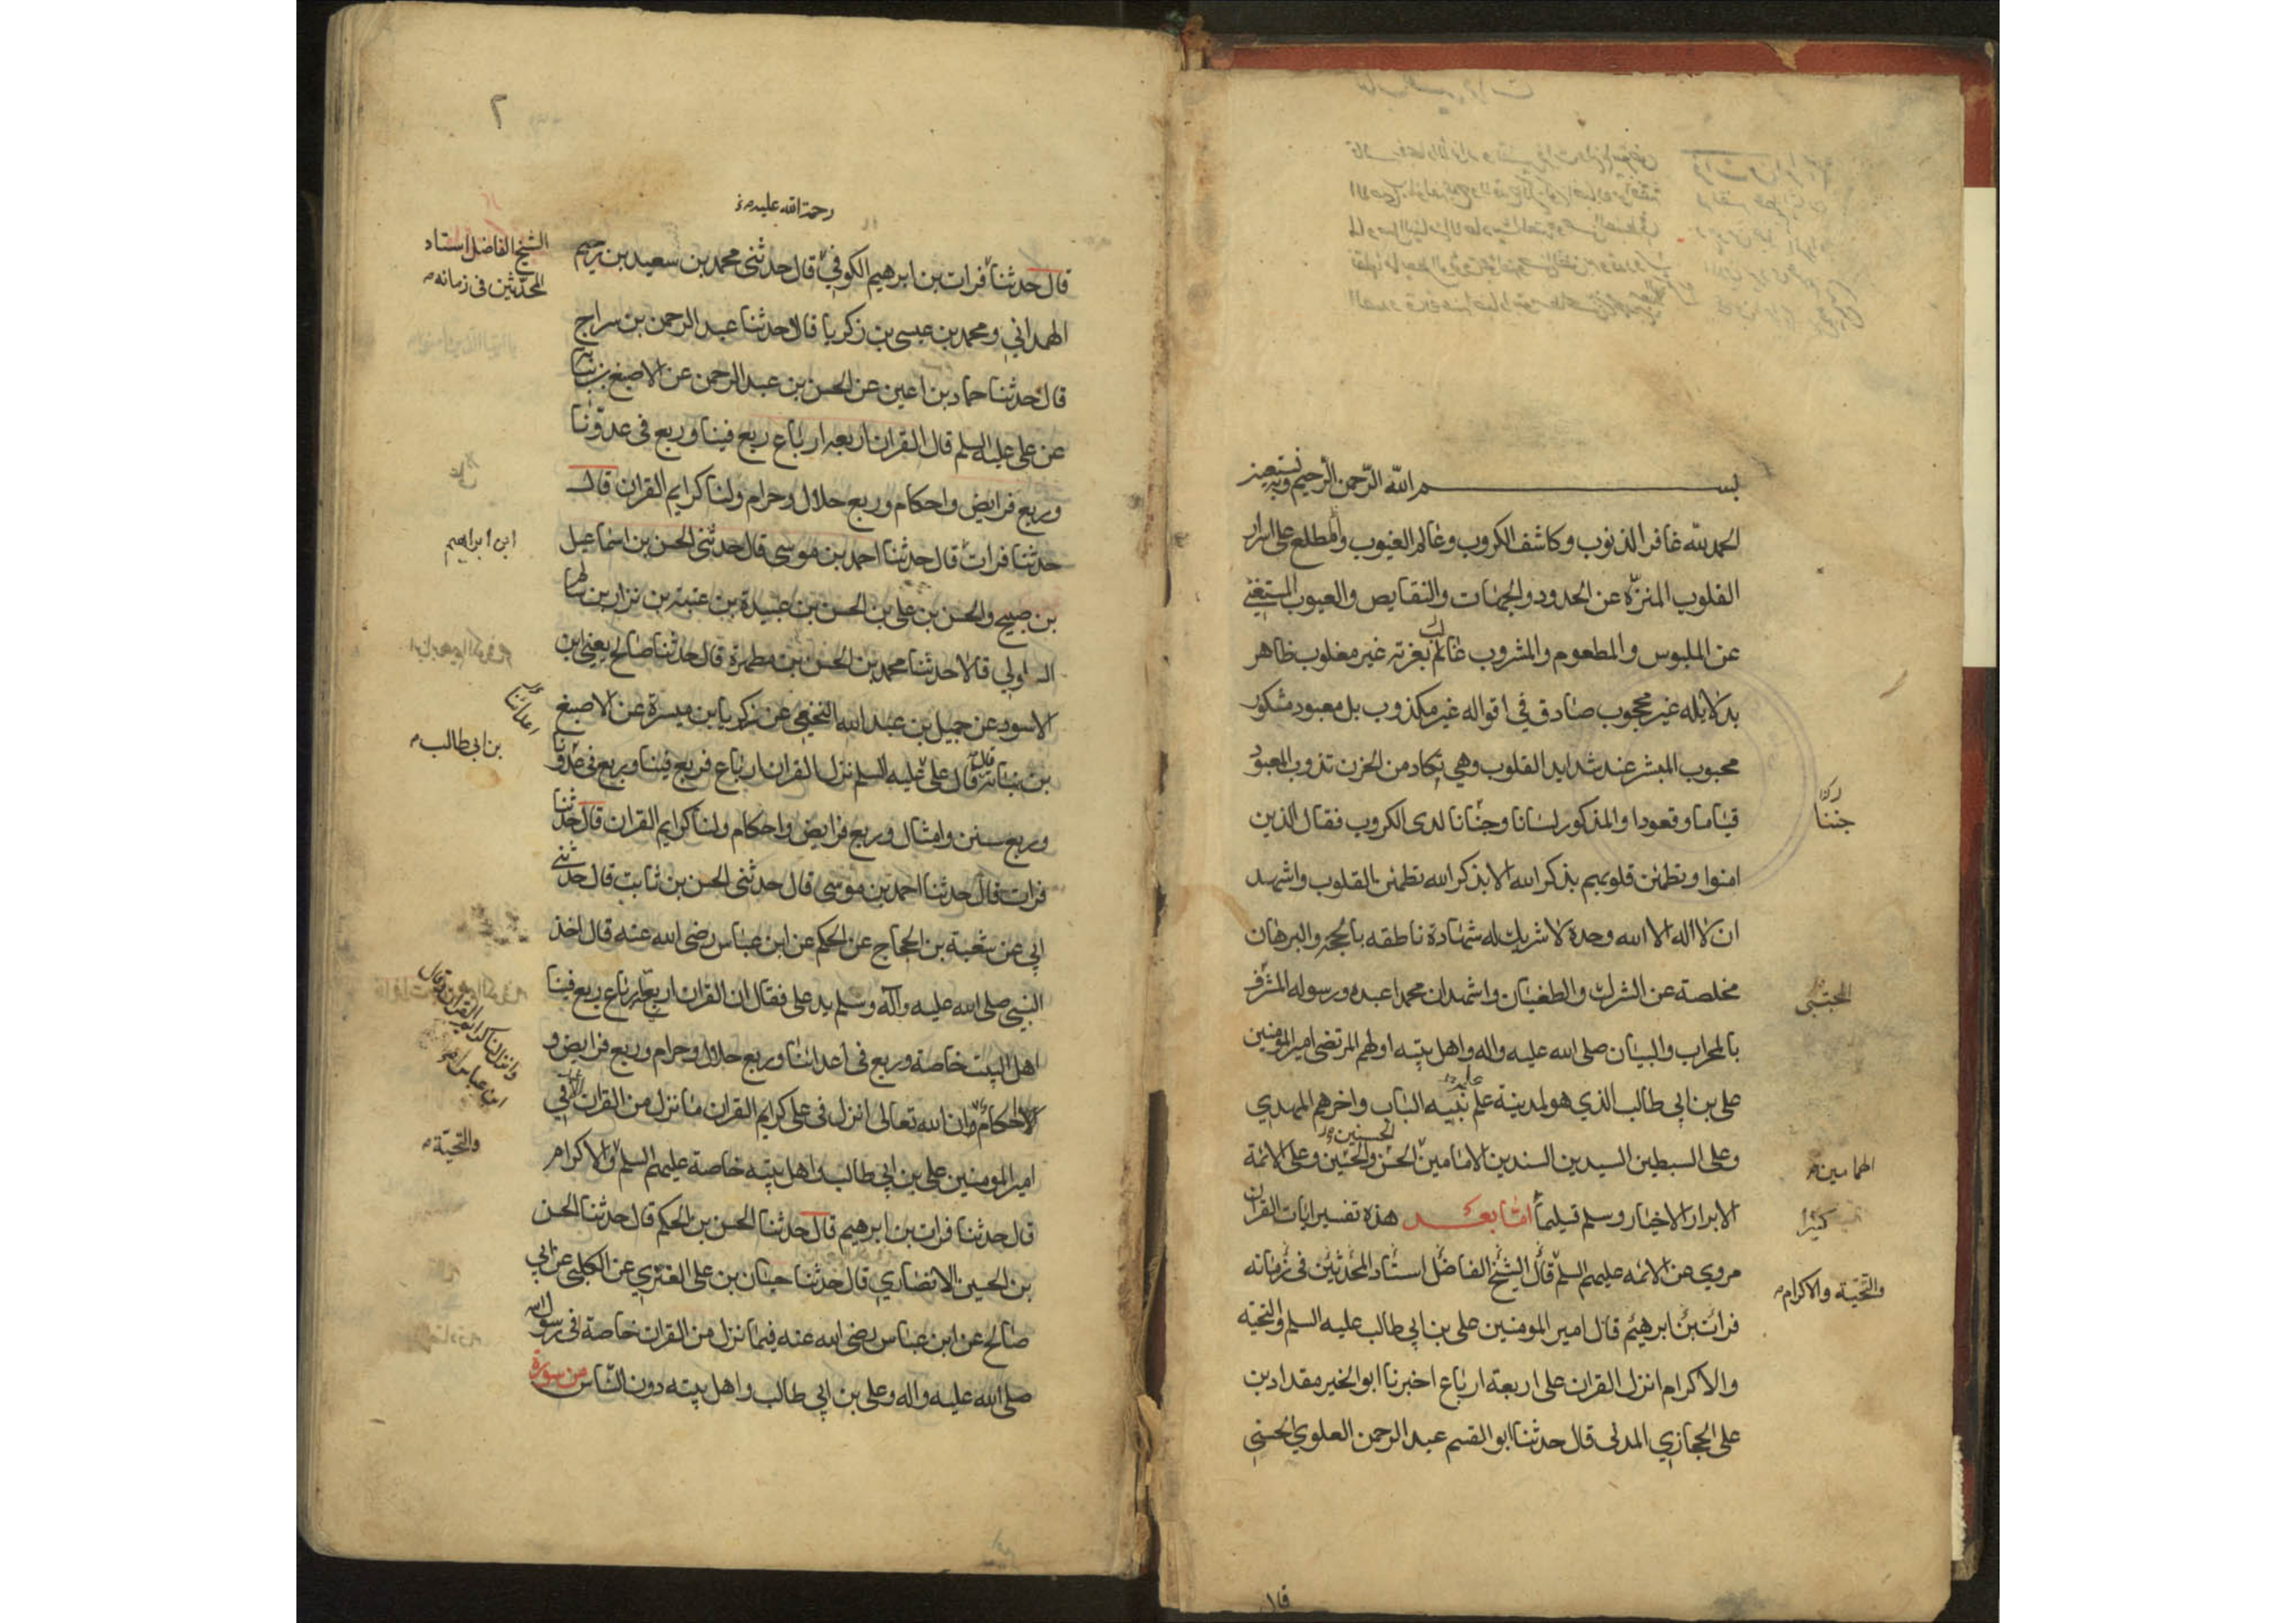 بسم الله الرحمن الرحيم وبه نستعين
الحمد لله غافر الذنوب وكاشف الكروب وعالم الغيوب والمطلع على اسرار
القلوب المنزه عن الحدود والجهات والنقايص والعيوب المستغني
عن الملبوس والمطعوم والمشروب غالب بعزته غير مغلوب ظاهر
بدلايله غير محجوب صادق في اقواله غير مكذوب بل معبود مشكور
محبوب المبشر عند شدايد القلوب وهي تكاد من الحزن تذوب المعبود
قياما وقعودا والمذكور لسانا وجنانا لدى الكروب فقال الذين
امنوا وتطمئن قلوبهم بذكر الله الا بذكر الله تطمئن القلوب واشهد
ان لا اله الا الله وحده لا شريك له شهادة ناطقه بالحجه والبرهان
مخلصة عن الشرك والطغيان واشهد ان محمدا عبده ورسوله المشرف
بالمحراب والبيان صلى الله عليه واله واهل بيته اولهم المرتضى امير المؤمنين
على بن ابي طالب الذي هو لمدينة علم نبيه الباب واخرهم المهدي
وعلى السبطين السيدين السندين الامامين الحسن والحسين وعلى الائمة
الابرار الاخيار وسلم تسليما اما بعد هذه تفسير ايات القران
مروي عن الائمه عليهم السلم قال الشيخ الفاضل استاد المحدثين فى زمانه
فرات بن ابرهيم قال امير المومنين على بن ابي طالب عليه السلم والتحيه
والاكرام انزل القران على اربعة ارباع اخبرنا ابو الخير مقداد بن
على الحجازي المدنى قال حدثنا ابو القسم عبد الرحمن العلوي الحسني
جننا
المجتبى
الهمامين
كثيرا
والتحيّة والاكرام
قال
٢
رحمة الله عليه
قال حدثنا فرات بن ابرهيم الكوفي قال حدثنى محمد بن سعيد بن رحيم
الهمداني ومحمد بن عيسى بن زكريا قالا حدثنا عبد الرحمن بن سراج
قال حدثنا حماد بن اعين عن الحسن بن عبد الرحمن عن الاصبغ بن نباته
عن على عليه السلم قال القران اربعه ارباع ربع فينا وربع فى عدونا
وربع فرايض واحكام وربع حلال وحرام ولنا كرايم القران قال
حدثنا فرات قال حدثنا احمد بن موسى قال حدثنى الحسن بن اسماعيل
بن صبيح والحسن بن على بن الحسن بن عبيدة بن عقبة بن نزار بن سالم
السلولي قالا حدثنا محمد بن الحسن بن مطهرة قال حدثنا صالح يعني ابن
الاسود عن جميل بن عبد الله النخعي عن زكريا بن ميسرة عن الاصبغ
بن نباتة قال قال على عليه السلم نزل القران ارباع فربع فينا وربع فى عدونا
وربع سنن وامثال وربع فرايض واحكام ولنا كرايم القران قال حدثنا
فرات قال حدثنا احمد بن موسى قال حدثنى الحسن بن ثابت قال حدثنى
ابي عن شعبة بن الحجاج عن الحكم عن ابن عباس رضى الله عنه قال اخذ
النبي صلى الله عليه وآله وسلم يد على فقال ان القران اربعة ارباع ربع فينا
اهل البيت خاصة وربع في أعدائنا وربع حلال وحرام وربع فرايض و
الاحكام وان الله تعالى انزل فى على كرايم القران ما نزل من القران في
امير المومنين على بن ابي طالب واهل بيته خاصة عليهم السلم والاكرام
قال حدثنا فرات بن ابرهيم قال حدثنا الحسن بن الحكم قال حدثنا الحسن
بن الحسين الانصاري قال حدثنا حيان بن على العنزي عن الكلبي عن ابي
صالح عن ابن عباس رضى الله عنه فيما نزل من القران خاصة فى رسول الله
صلى الله عليه واله وعلى بن ابي طالب واهل بيته دون الناس من سورة
الشيخ الفاضل استاد
المحدّثين فى زمانه
ابن ابراهيم
اعدائنا
بن ابى طالب
والتحيّة